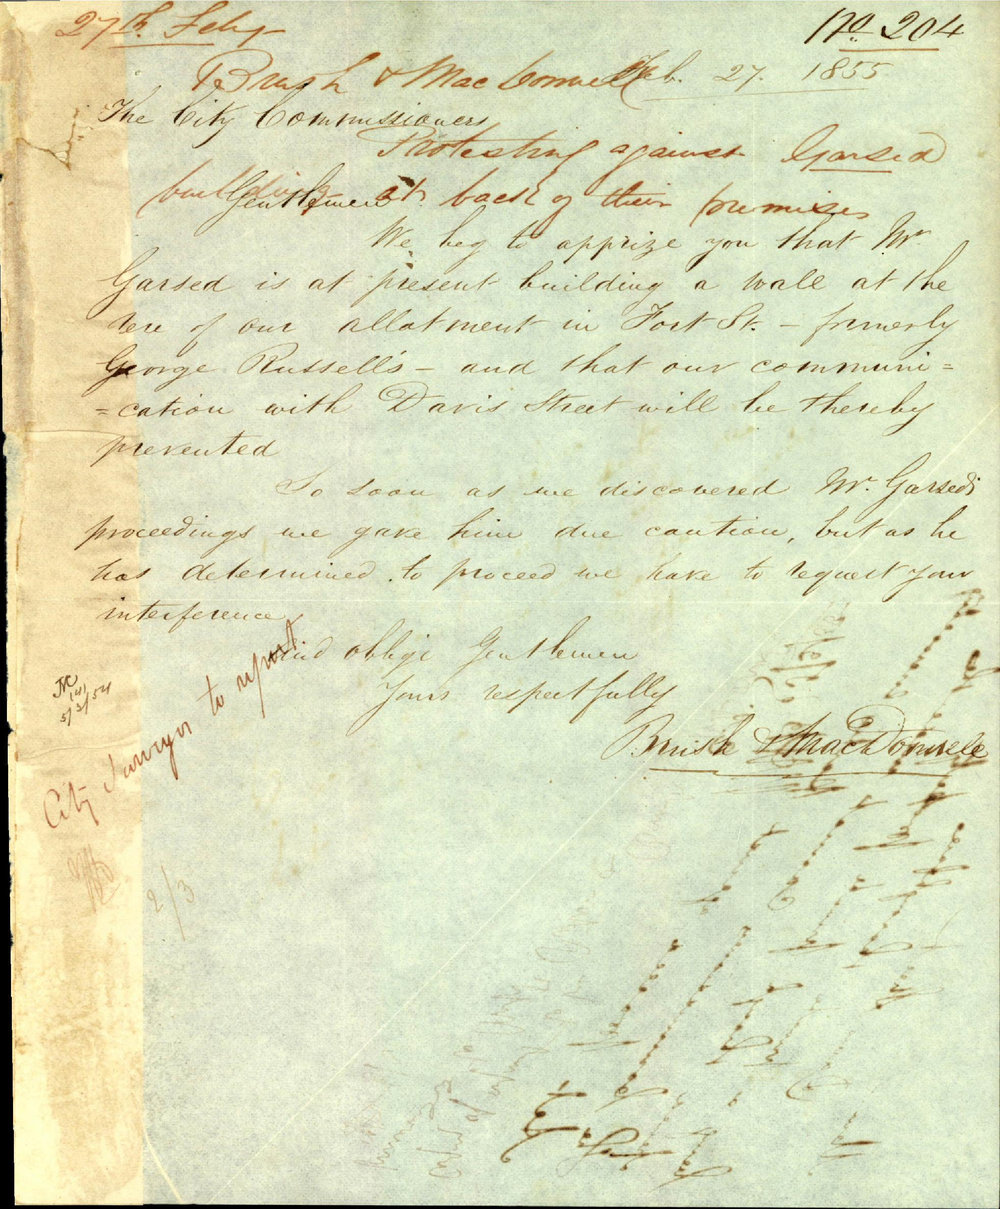 27th Feby
No 204
Brush & MacDonnell
Feb. 27. 1855
The City Commissioners
Protesting against Garsed
building at back of their premises
Gentlemen
We beg to apprize you that Mr
Garsed is at present building a wall at the
rere of our allotment in Fort St. – formerly
George Russell's – and that our communi=
=cation with Davis Street will be thereby
prevented
So soon as we discovered Mr. Garsed's
proceedings we gave him due caution, but as he
has determined to proceed we have to request your
interference
And oblige Gentlemen
Yours respectfully
Brush & MacDonnell
City Surveyor to report
2/3
5/3/54